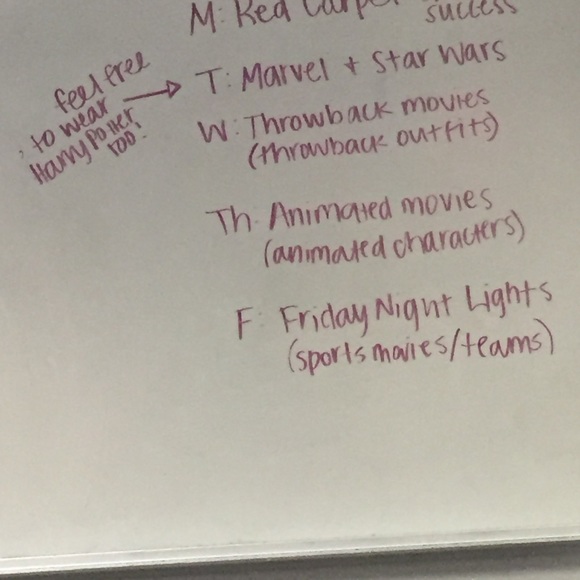 M: Red Carpet
success
T: Marvel + Star Wars
feel free
to wear
Harry Potter
too!
W: Throwback movies
(throwback outfits)
Th: Animated movies
(animated characters)
F: Friday Night Lights
(sports movies/teams)